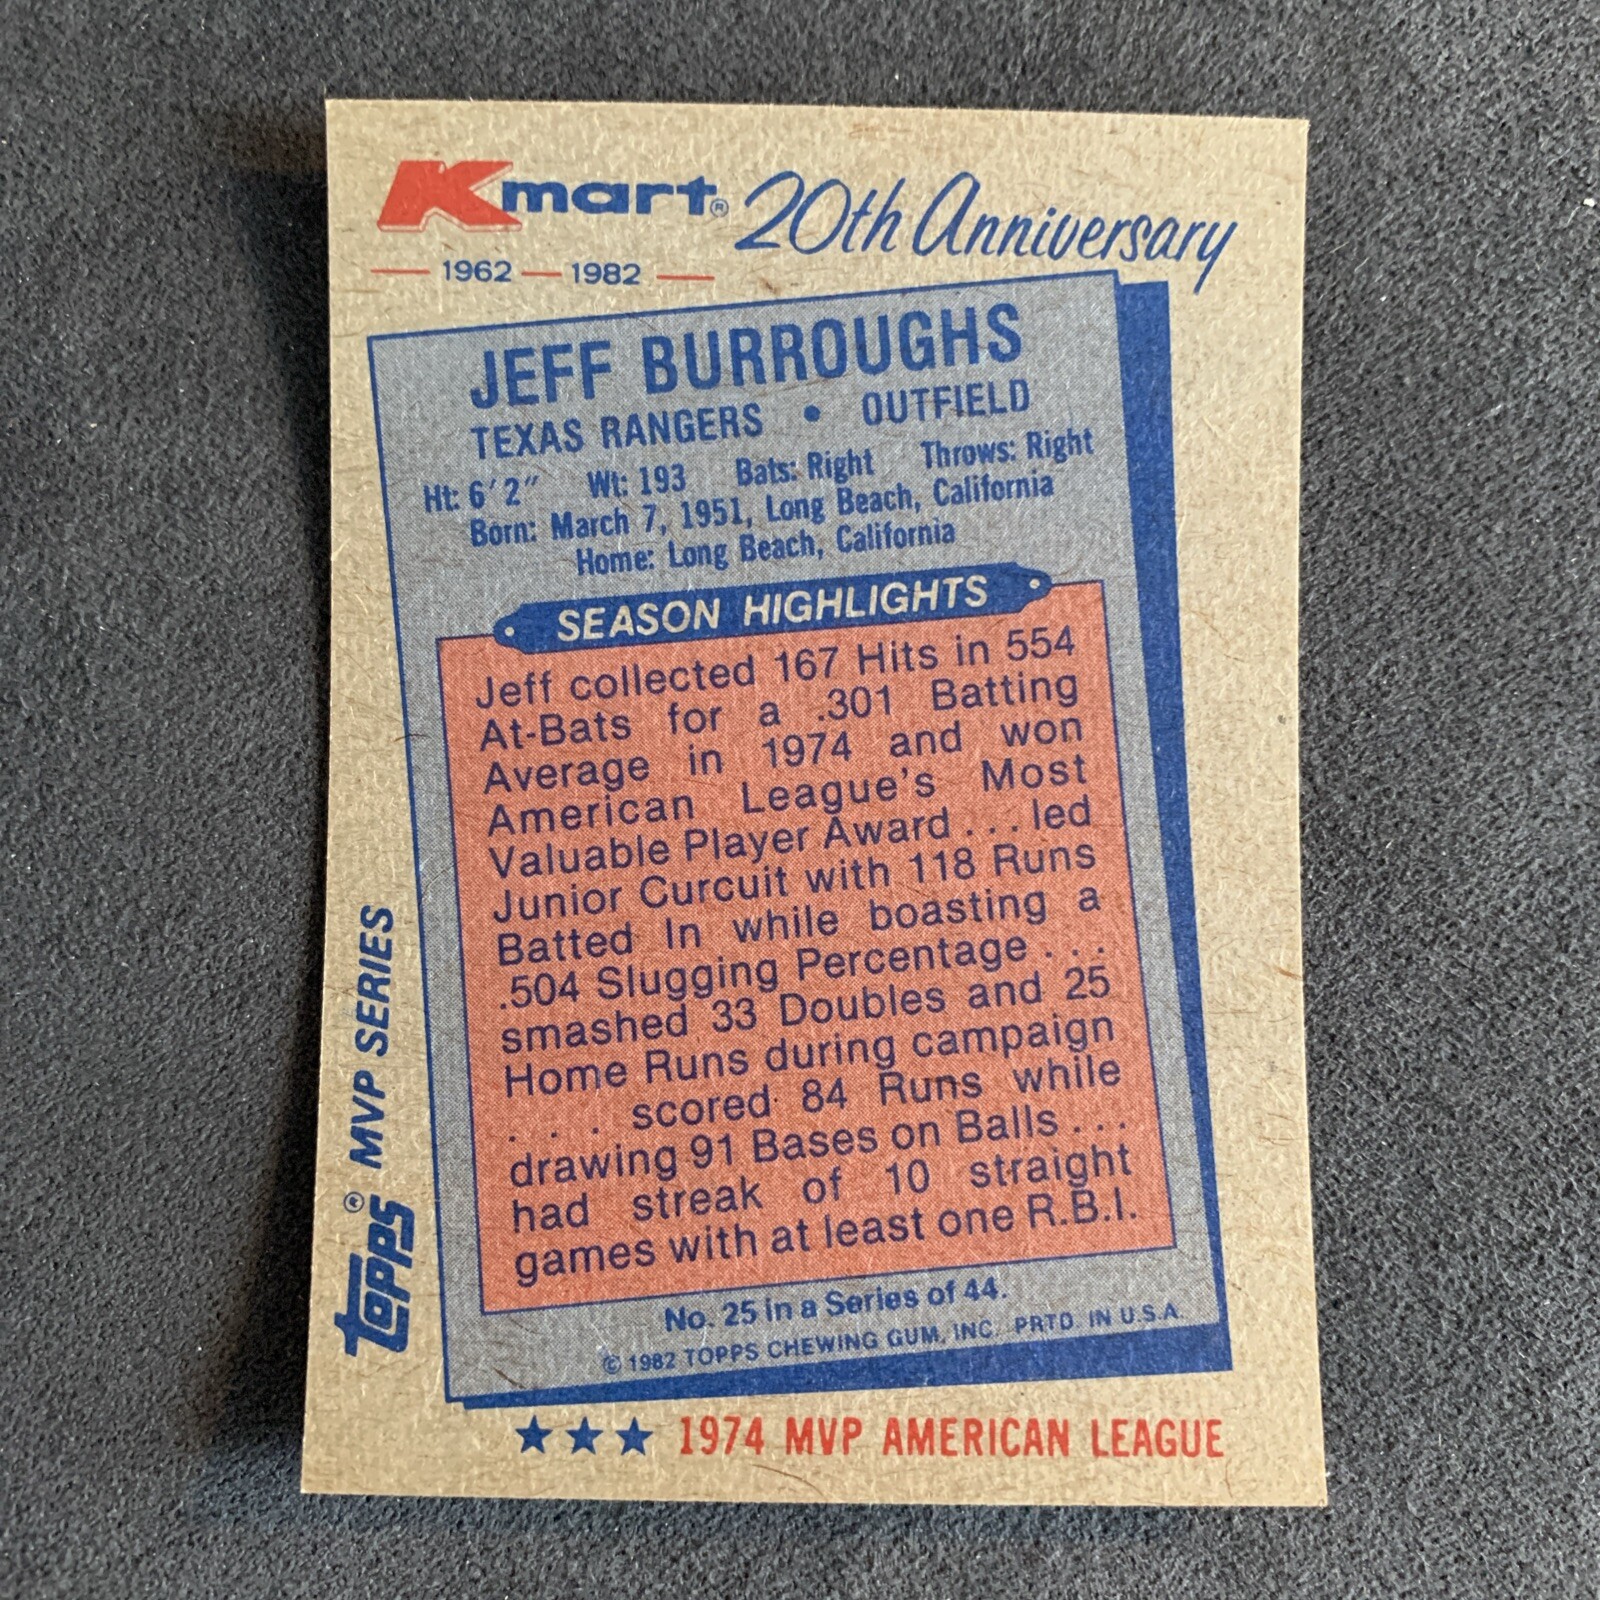 Kmart® 20th Anniversary
1962 — 1982
JEFF BURROUGHS
TEXAS RANGERS • OUTFIELD
Ht: 6'2" Wt: 193 Bats: Right Throws: Right
Born: March 7, 1951, Long Beach, California
Home: Long Beach, California
SEASON HIGHLIGHTS
Jeff collected 167 Hits in 554
At-Bats for a .301 Batting
Average in 1974 and won
American League's Most
Valuable Player Award . . . led
Junior Curcuit with 118 Runs
Batted In while boasting a
.504 Slugging Percentage . . .
smashed 33 Doubles and 25
Home Runs during campaign
. . . scored 84 Runs while
drawing 91 Bases on Balls . . .
had streak of 10 straight
games with at least one R.B.I.
No. 25 in a Series of 44.
© 1982 TOPPS CHEWING GUM, INC. PRTD. IN U.S.A.
1974 MVP AMERICAN LEAGUE
Topps® MVP SERIES